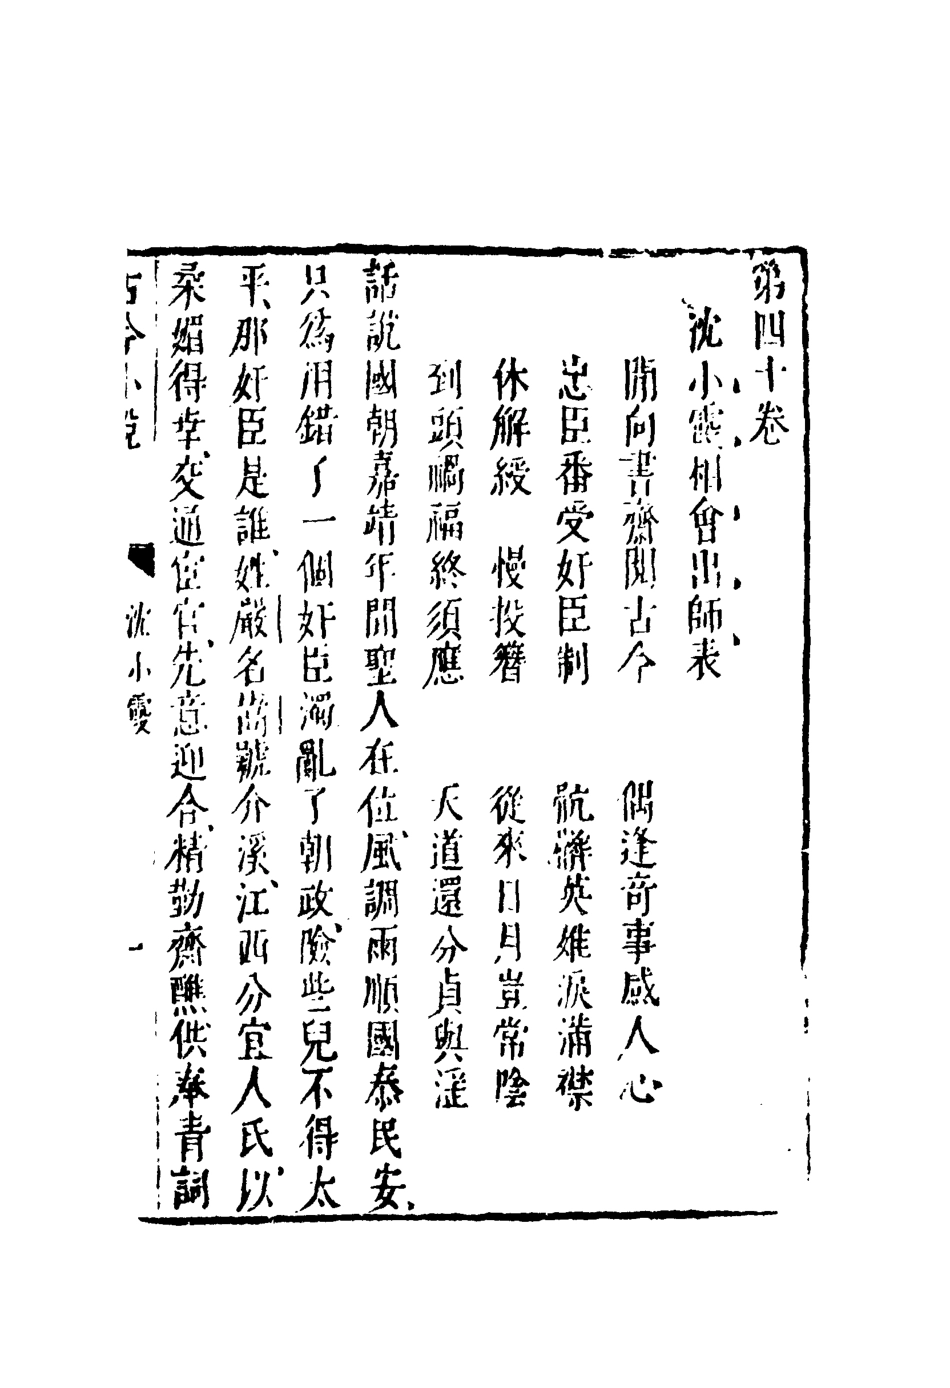 第四十卷
沈小霞相會出師表
閒向書齋閱古今 偶逢奇事感人心
忠臣番受奸臣制 骯髒英雄淚滿襟
休解綬 慢投簪 從來日月豈常陰
到頭禍福終須應 天道還分貞與淫
話說國朝嘉靖年間聖人在位風調雨順國泰民安
只為用錯了一個奸臣濁亂了朝政險些兒不得太
平那奸臣是誰姓嚴名嵩號介溪江西分宜人氏以
柔媚得幸交通宦官先意迎合精勤齋醮供奉青詞
古今小說 沈小霞 一